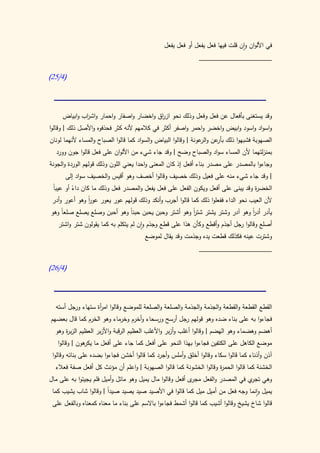 في الألوان وإن قلت فيها فعل يفعل أو فعل يفعل
(25/4)
وقد يستغنى بأفعال عن فعل وفعل وذلك نحو ازراق واخضار واصفار واحمار واشراب وابياض
واسواد واسود وابيض واخضر واحمر واصفر أكثر في كلامهم لأنه كثر فحذفوه والأصل ذلك } وقالوا
الصهوبة فشبهوا ذلك بأرعن والرعونة } وقالوا البياض والسواد كما قالوا الصباح والمساء لأنهما لونان
بمنزلتهما لأن المساء سواد والصباح وضح } وقد جاء شيء من الألوان على فعل قالوا جون وورد
وجاءوا بالمصدر على مصدر بناء أفعل إذ كان المعنى واحدا يعني اللون وذلك قولهم الوردة والجونة
} وقد جاء شيء منه على فعيل وذلك خصيف وقالوا أخصف وهو أقيس والخصيف سواد إلى
الخضرة وقد يبنى على أفعل ويكون الفعل على فعل يفعل والمصدر فعل وذلك ما كان داءً أو عيباً
لأن العيب نحو الداء ففعلوا ذلك كما قالوا أجرب وأنكد وذلك قولهم عور يعور عوراً وهو أعور وأدر
يأدر أدراً وهو آدر وشتر يشتر شتراً وهو أشتر وحبن يحبن حبناً وهو أحبن وصلع يصلع صلعاً وهو
أصلع وقالوا رجل أجذم وأقطع وكأن هذا على قطع وجذم وإن لم يتكلم به كما يقولون شتر واشتر
وشترت عينه فكذلك قطعت يده وجذمت وقد يقال لموضع
(26/4)
القطع القطعة والقطعة والجذمة والجذمة والصلعة والصلعة للموضع وقالوا امرأة ستهاء ورجل أسته
فجاءوا به على بناء ضده وهو قولهم رجل أرسح ورسحاء وأخرم وخرماء وهو الخرم كما قال بعضهم
أهضم وهضماء وهو الهضم } وقالوا أغلب وأزبر والأغلب العظيم الرقبة والأزبر العظيم الزبرة وهو
موضع الكاهل على الكتفين فجاءوا بهذا النحو على أفعل كما جاء على أفعل ما يكرهون } وقالوا
آذن وأذناء كما قالوا سكاء وقالوا أخلق وأملس وأجرد كما قالوا أخشن فجاءوا بضده على بنائه وقالوا
الخشنة كما قالوا الحمرة وقالوا الخشونة كما قالوا الصهوبة } واعلم أن مؤنث كل أفعل صفة فعلاء
وهي تجري في المصدر والفعل مجرى أفعل وقالوا مال يميل وهو مائل وأميل فلم يجيئوا به على مال
يميل وإنما وجه فعل من أميل ميل كما قالوا في الأصيد صيد يصيد صيداً } وقالوا شاب يشيب كما
قالوا شاخ يشيخ وقالوا أشيب كما قالوا أشمط فجاءوا بالاسم على بناء ما معناه كمعناه وبالفعل على